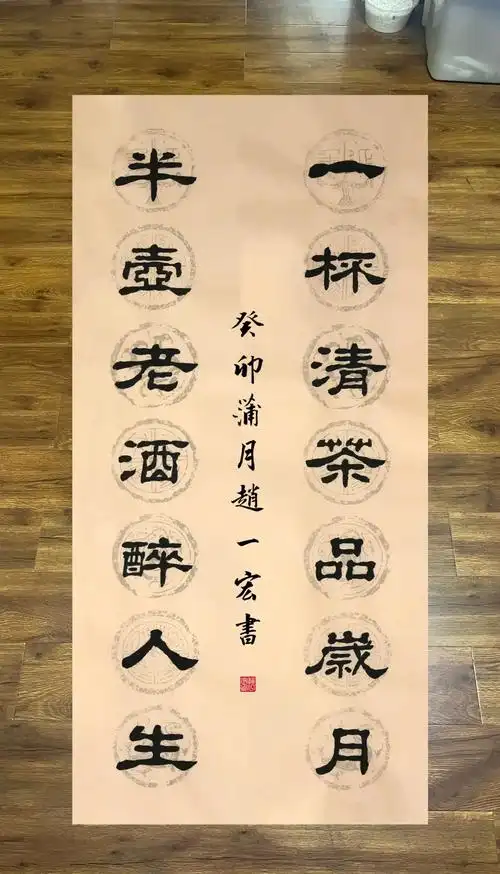 一杯清茶品歲月
半壺老酒醉人生
癸卯蒲月趙一宏書